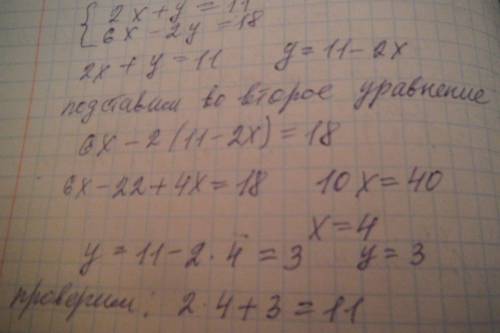 { 2x + y = 11
6x - 2y = 18
2x + y = 11 y = 11 - 2x
подставим во второе уравнение
6x - 2(11 - 2x) = 18
6x - 22 + 4x = 18 10x = 40
x = 4
y = 11 - 2 · 4 = 3 y = 3
проверим: 2 · 4 + 3 = 11